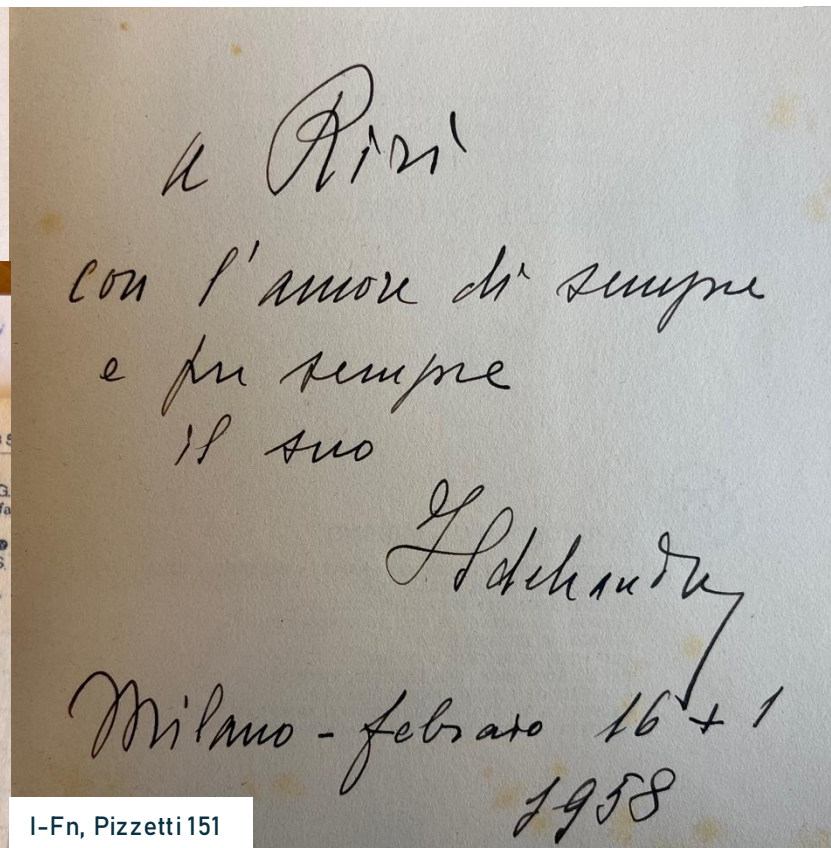 a Rirì
con l'amore di sempre
e per sempre
il suo
Ildebrando
Milano - febraio 16 + 1
1958
I-Fn, Pizzetti 151